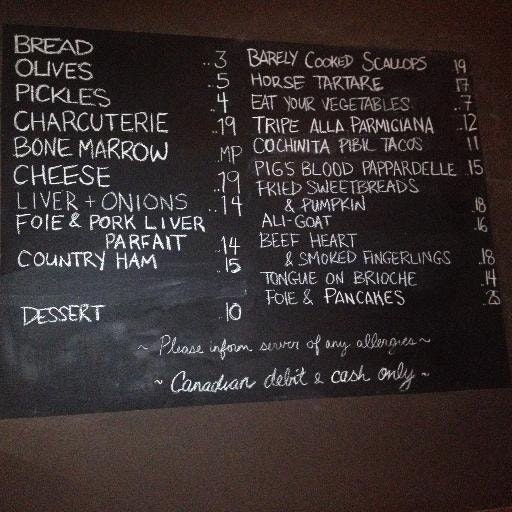 BREAD ..3
OLIVES ..5
PICKLES ..4
CHARCUTERIE ..19
BONE MARROW MP
CHEESE ..19
LIVER + ONIONS ..14
FOIE & PORK LIVER
PARFAIT ..14
COUNTRY HAM ..15
DESSERT ..10
BARELY COOKED SCALLOPS 19
HORSE TARTARE 17
EAT YOUR VEGETABLES ..7
TRIPE ALLA PARMIGIANA ..12
COCHINITA PIBIL TACOS 11
PIG'S BLOOD PAPPARDELLE .15
FRIED SWEETBREADS
& PUMPKIN .18
ALI-GOAT .16
BEEF HEART
& SMOKED FINGERLINGS .18
TONGUE ON BRIOCHE .14
FOIE & PANCAKES .25
~ Please inform server of any allergies ~
~ Canadian debit & cash only ~